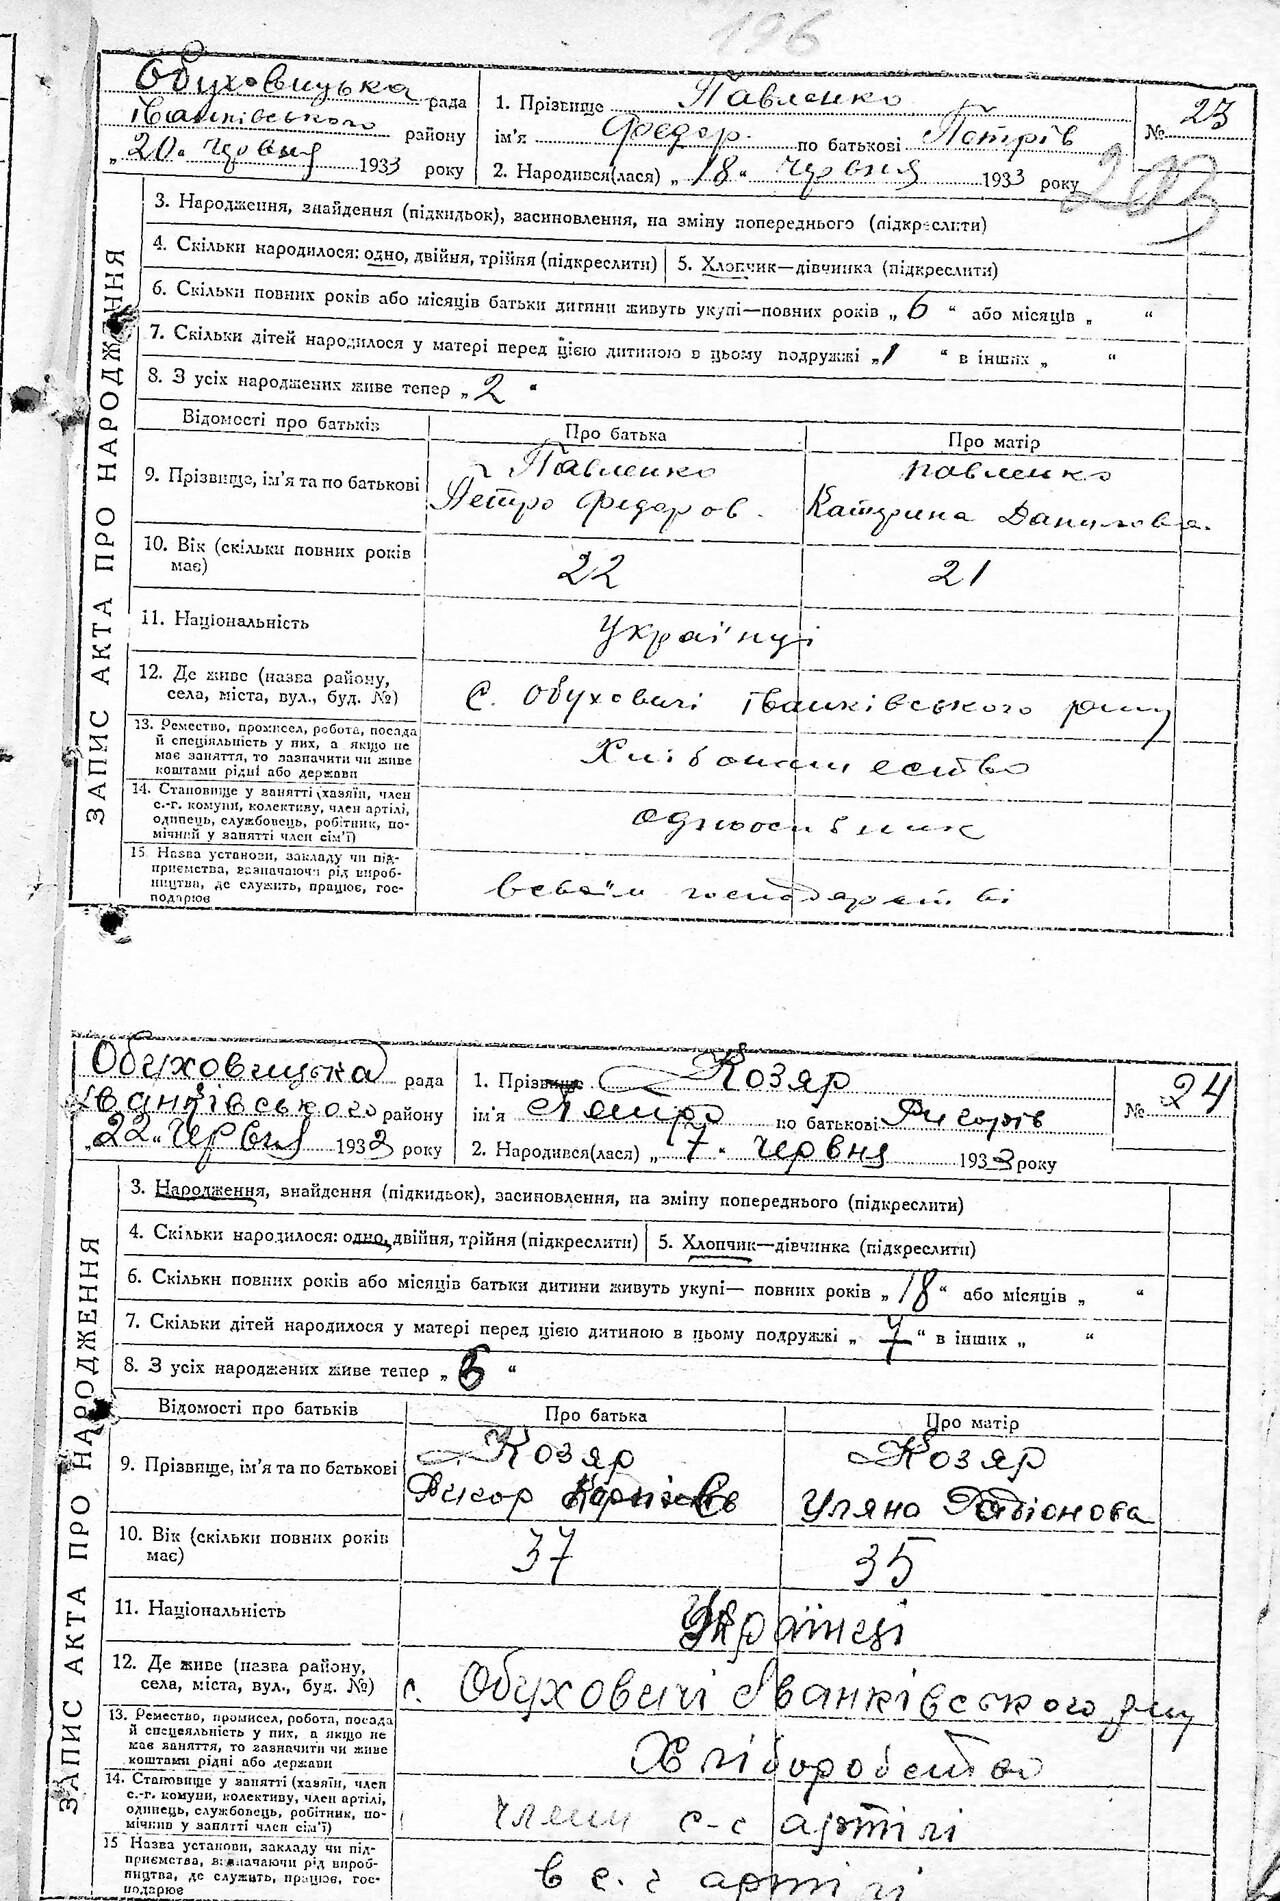 196
Обуховицька рада
Іванківського району
„20“ червня 1933 року
1. Прізвище Павленко
ім'я Федор по батькові Петрів
2. Народився(лася) „18“ червня 1933 року
№ 23
203
ЗАПИС АКТА ПРО НАРОДЖЕННЯ
3. Народження, знайдення (підкидьок), засиновлення, на зміну попереднього (підкреслити)
4. Скільки народилося: одно, двійня, трійня (підкреслити)
5. Хлопчик—дівчинка (підкреслити)
6. Скільки повних років або місяців батьки дитини живуть укупі—повних років „6“ або місяців „ “
7. Скільки дітей народилося у матері перед цією дитиною в цьому подружжі „1“ в інших „ “
8. З усіх народжених живе тепер „2“
Відомості про батьків
Про батька
Про матір
9. Прізвище, ім'я та по батькові
Павленко
Петро Федоров.
Павленко
Катерина Данилова.
10. Вік (скільки повних років
має)
22
21
11. Національність
Українці
12. Де живе (назва району,
села, міста, вул., буд. №)
С. Обуховичі Іванківського р-ну
13. Ремество, промисел, робота, посада
й спеціяльність у них, а якщо не
має заняття, то зазначити чи живе
коштами рідні або держави
14. Становище у занятті (хазяїн, член
с.-г. комуни, колективу, член артілі,
одинець, службовець, робітник, по-
мічний у занятті член сім'ї)
одноосібник
15. Назва установи, закладу чи під-
приємства, зазначаючи рід вироб-
ництва, де служить, працює, гос-
подарює
в своїм господарстві
Обуховицька рада
Іванківського району
„22“ червня 1933 року
1. Прізвище Козяр
ім'я Петро по батькові Григорів
2. Народився(лася) „7“ червня 1933 року
№ 24
ЗАПИС АКТА ПРО НАРОДЖЕННЯ
3. Народження, знайдення (підкидьок), засиновлення, на зміну попереднього (підкреслити)
4. Скільки народилося: одно, двійня, трійня (підкреслити)
5. Хлопчик—дівчинка (підкреслити)
6. Скільки повних років або місяців батьки дитини живуть укупі— повних років „18“ або місяців „ “
7. Скільки дітей народилося у матері перед цією дитиною в цьому подружжі „7“ в інших „ “
8. З усіх народжених живе тепер „ “
Відомості про батьків
Про батька
Про матір
9. Прізвище, ім'я та по батькові
Козяр
Козяр
Уляна Радіонова
10. Вік (скільки повних років
має)
37
35
11. Національність
Українці
12. Де живе (назва району,
села, міста, вул., буд. №)
с. Обуховичі Іванківського р-ну
13. Ремество, промисел, робота, посада
й спецеяльність у них, а якщо не
має заняття, то зазначити чи живе
коштами рідні або держави
Хліборобство
14. Становище у занятті (хазяїн, член
с.-г. комуни, колективу, член артілі,
одинець, службовець, робітник, по-
мічнив у занятті член сім'ї)
члени с-г артілі
15 Назва установи, закладу чи під-
приємства, зазначаючи рід вироб-
ництва, де служить, працює, гос-
подарює
в с. г артілі